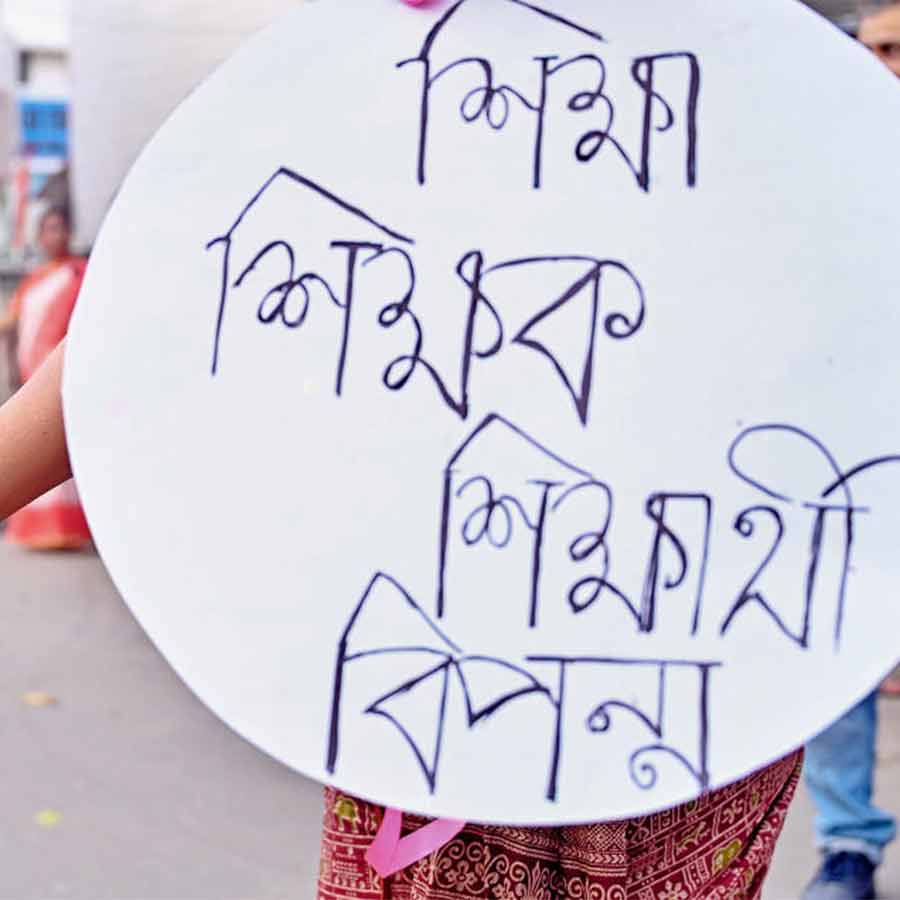 শিক্ষা
শিক্ষক
শিক্ষার্থী
বিপন্ন